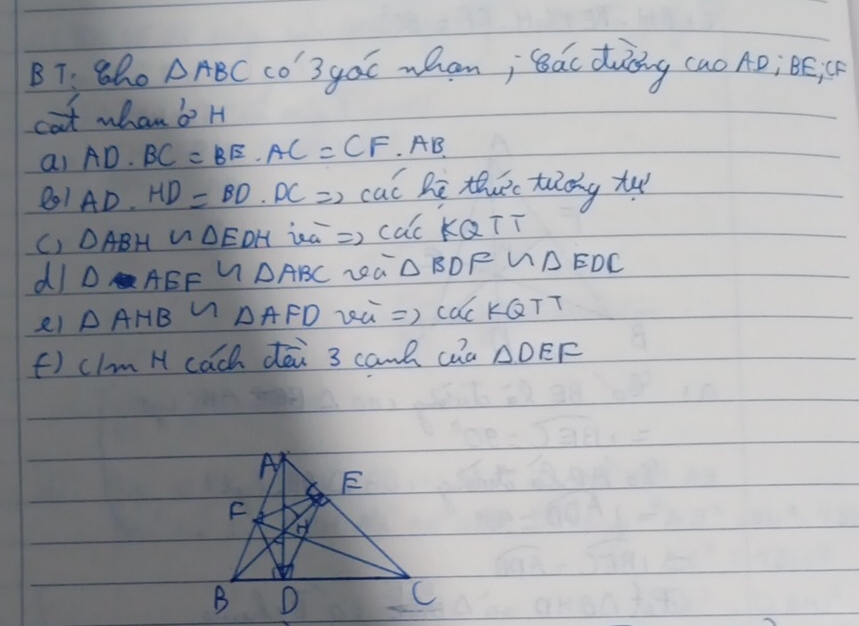 BT: Cho ΔABC có 3 góc nhọn ; Các đường cao AD; BE; CF
cắt nhau ở H
a) AD. BC = BE. AC = CF. AB
b) AD. HD = BD. DC => các hệ thức tương tự
c) ΔABH ∽ ΔEDH và => các KQTT
d) Δ AEF ∽ ΔABC và Δ BDF ∽ Δ EDC
e) Δ AHB ∽ ΔAFD và => các KQTT
f) c/m H cách đều 3 cạnh của ΔDEF
A
E
F
H
B D C